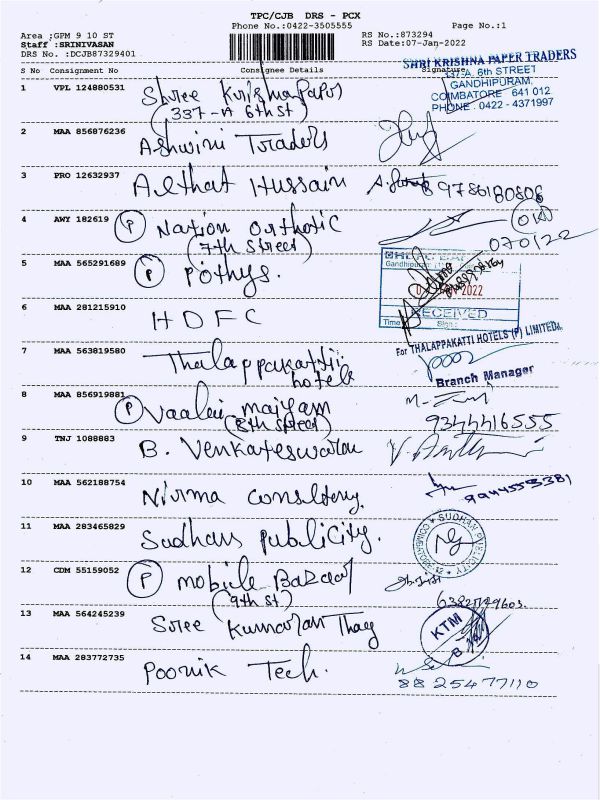 TPC/CJB DRS - PCX
Phone No.:0422-3505555
Page No.:1
Area ;GPM 9 10 ST
Staff :SRINIVASAN
DRS No. :DCJB87329401
RS No.:873294
RS Date:07-Jan-2022
S No Consignment No Consignee Details Signature
SHRI KRISHNA PAPER TRADERS
137-A, 6th STREET
GANDHIPURAM,
COIMBATORE 641 012
PHONE : 0422 - 4371997
1 VPL 124880531 Shree Krishna Paper
(337-A 6th St)
2 MAA 856876236 Ashwini Traders
3 PRO 12632937 Althat Hussain 89786180806
4 AWY 182619 P Nation orthotic
(7th Street)
070122
5 MAA 565291689 P Pothys.
2022
RECEIVED
Time Sign:
6 MAA 281215910 HDFC
7 MAA 563819580 Thalappakatti
hotels
For THALAPPAKATTI HOTELS (P) LIMITED.
Branch Manager
8 MAA 856919881 P Vaalai maiyam
(8th Street)
9344416555
9 TNJ 1088883 B. Venkateswaran
10 MAA 562188754 Nirma Consltery.
9944555381
11 MAA 283465829 Sudhans publicity.
12 CDM 55159052 P mobile Bazaar
(9th St)
13 MAA 564245239 Sree Kumaran Thag
KTM
14 MAA 283772735 Poornik Tech.
8825477110